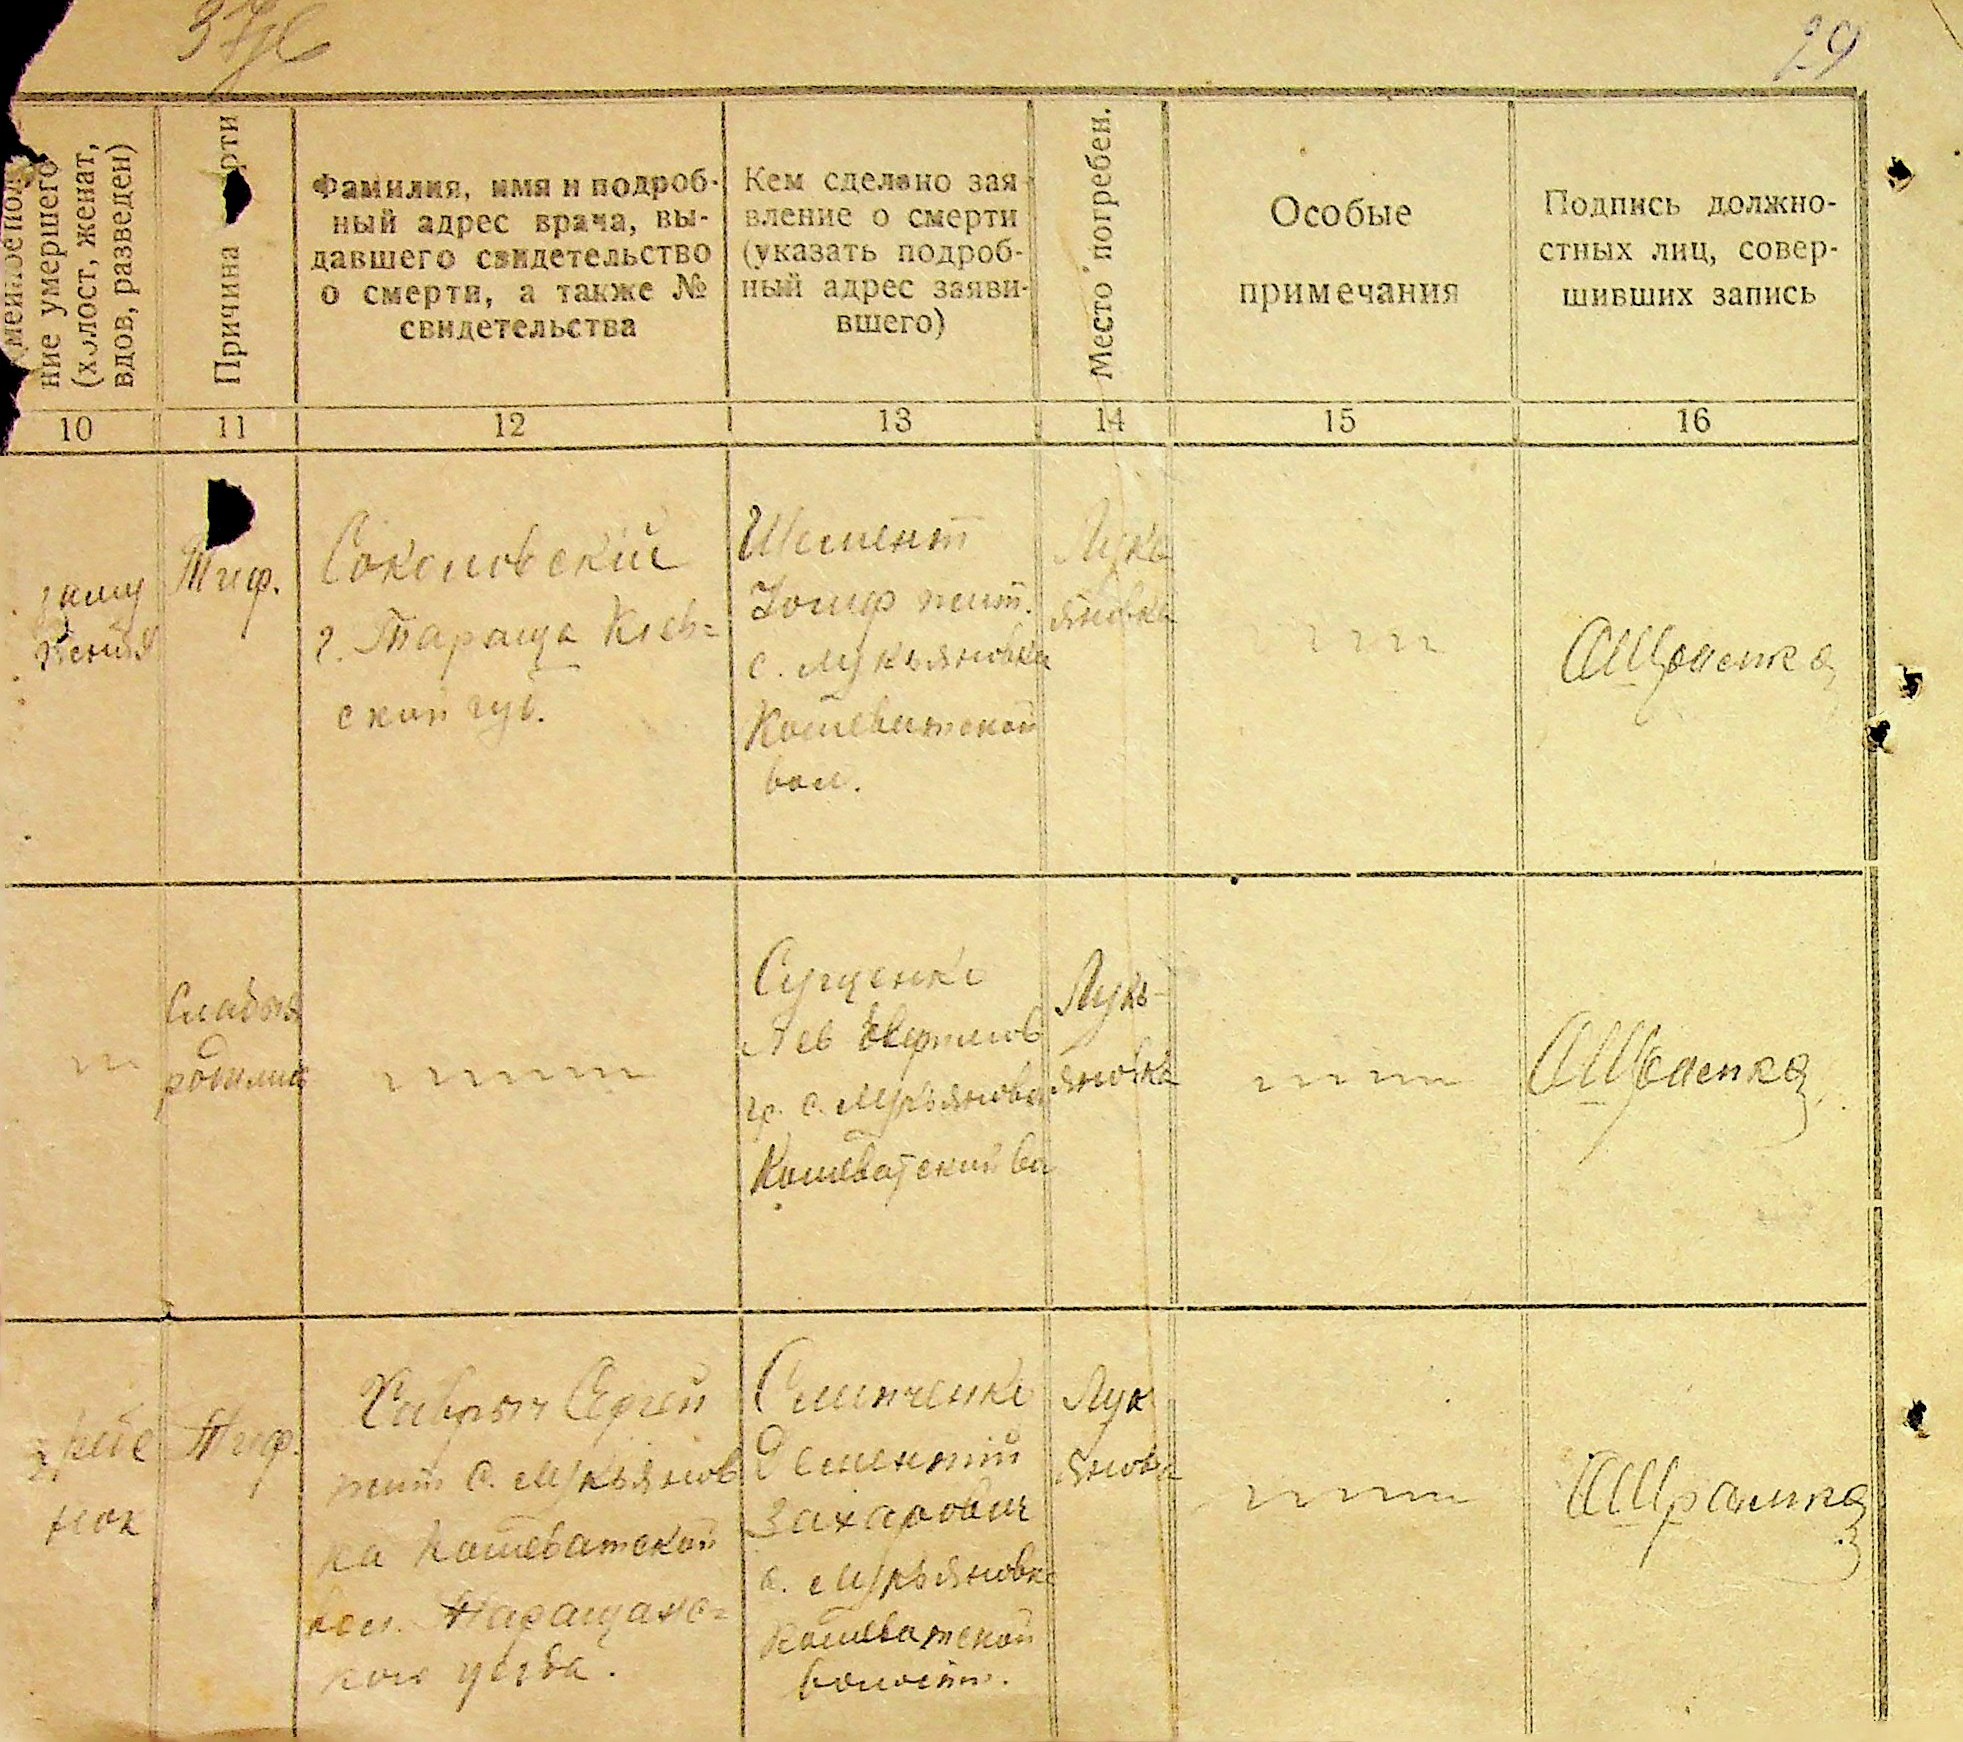 29
ние умершего
(холост, женат,
вдов, разведен)
Причина
рти
Фамилия, имя и подроб-
ный адрес врача, вы-
давшего свидетельство
о смерти, а также №
свидетельства
Кем сделано зая-
вление о смерти
(указать подроб-
ный адрес заяви-
вшего)
Место погребен.
Особые
примечания
Подпись должно-
стных лиц, совер-
шивших запись
10
11
12
13
14
15
16
заму
жняя
Тиф.
Соколовский
г. Тараща Киев-
ской губ.
Иосиф жит.
с. Лукьяновка
Кошеватской
вол.
Лукь
яновка
Слабый
родился
Лев
гр. с. Лукьяновка
Кошеватской во
Лукь-
яновка
ребе
нок
Тиф.
Сергей
жит с. Лукьянов
ка Кошеватской
вол. Таращанс-
кого уезда.
Дементий
Захарович
с. Лукьяновка
Кошеватской
волости.
Лук
яновка